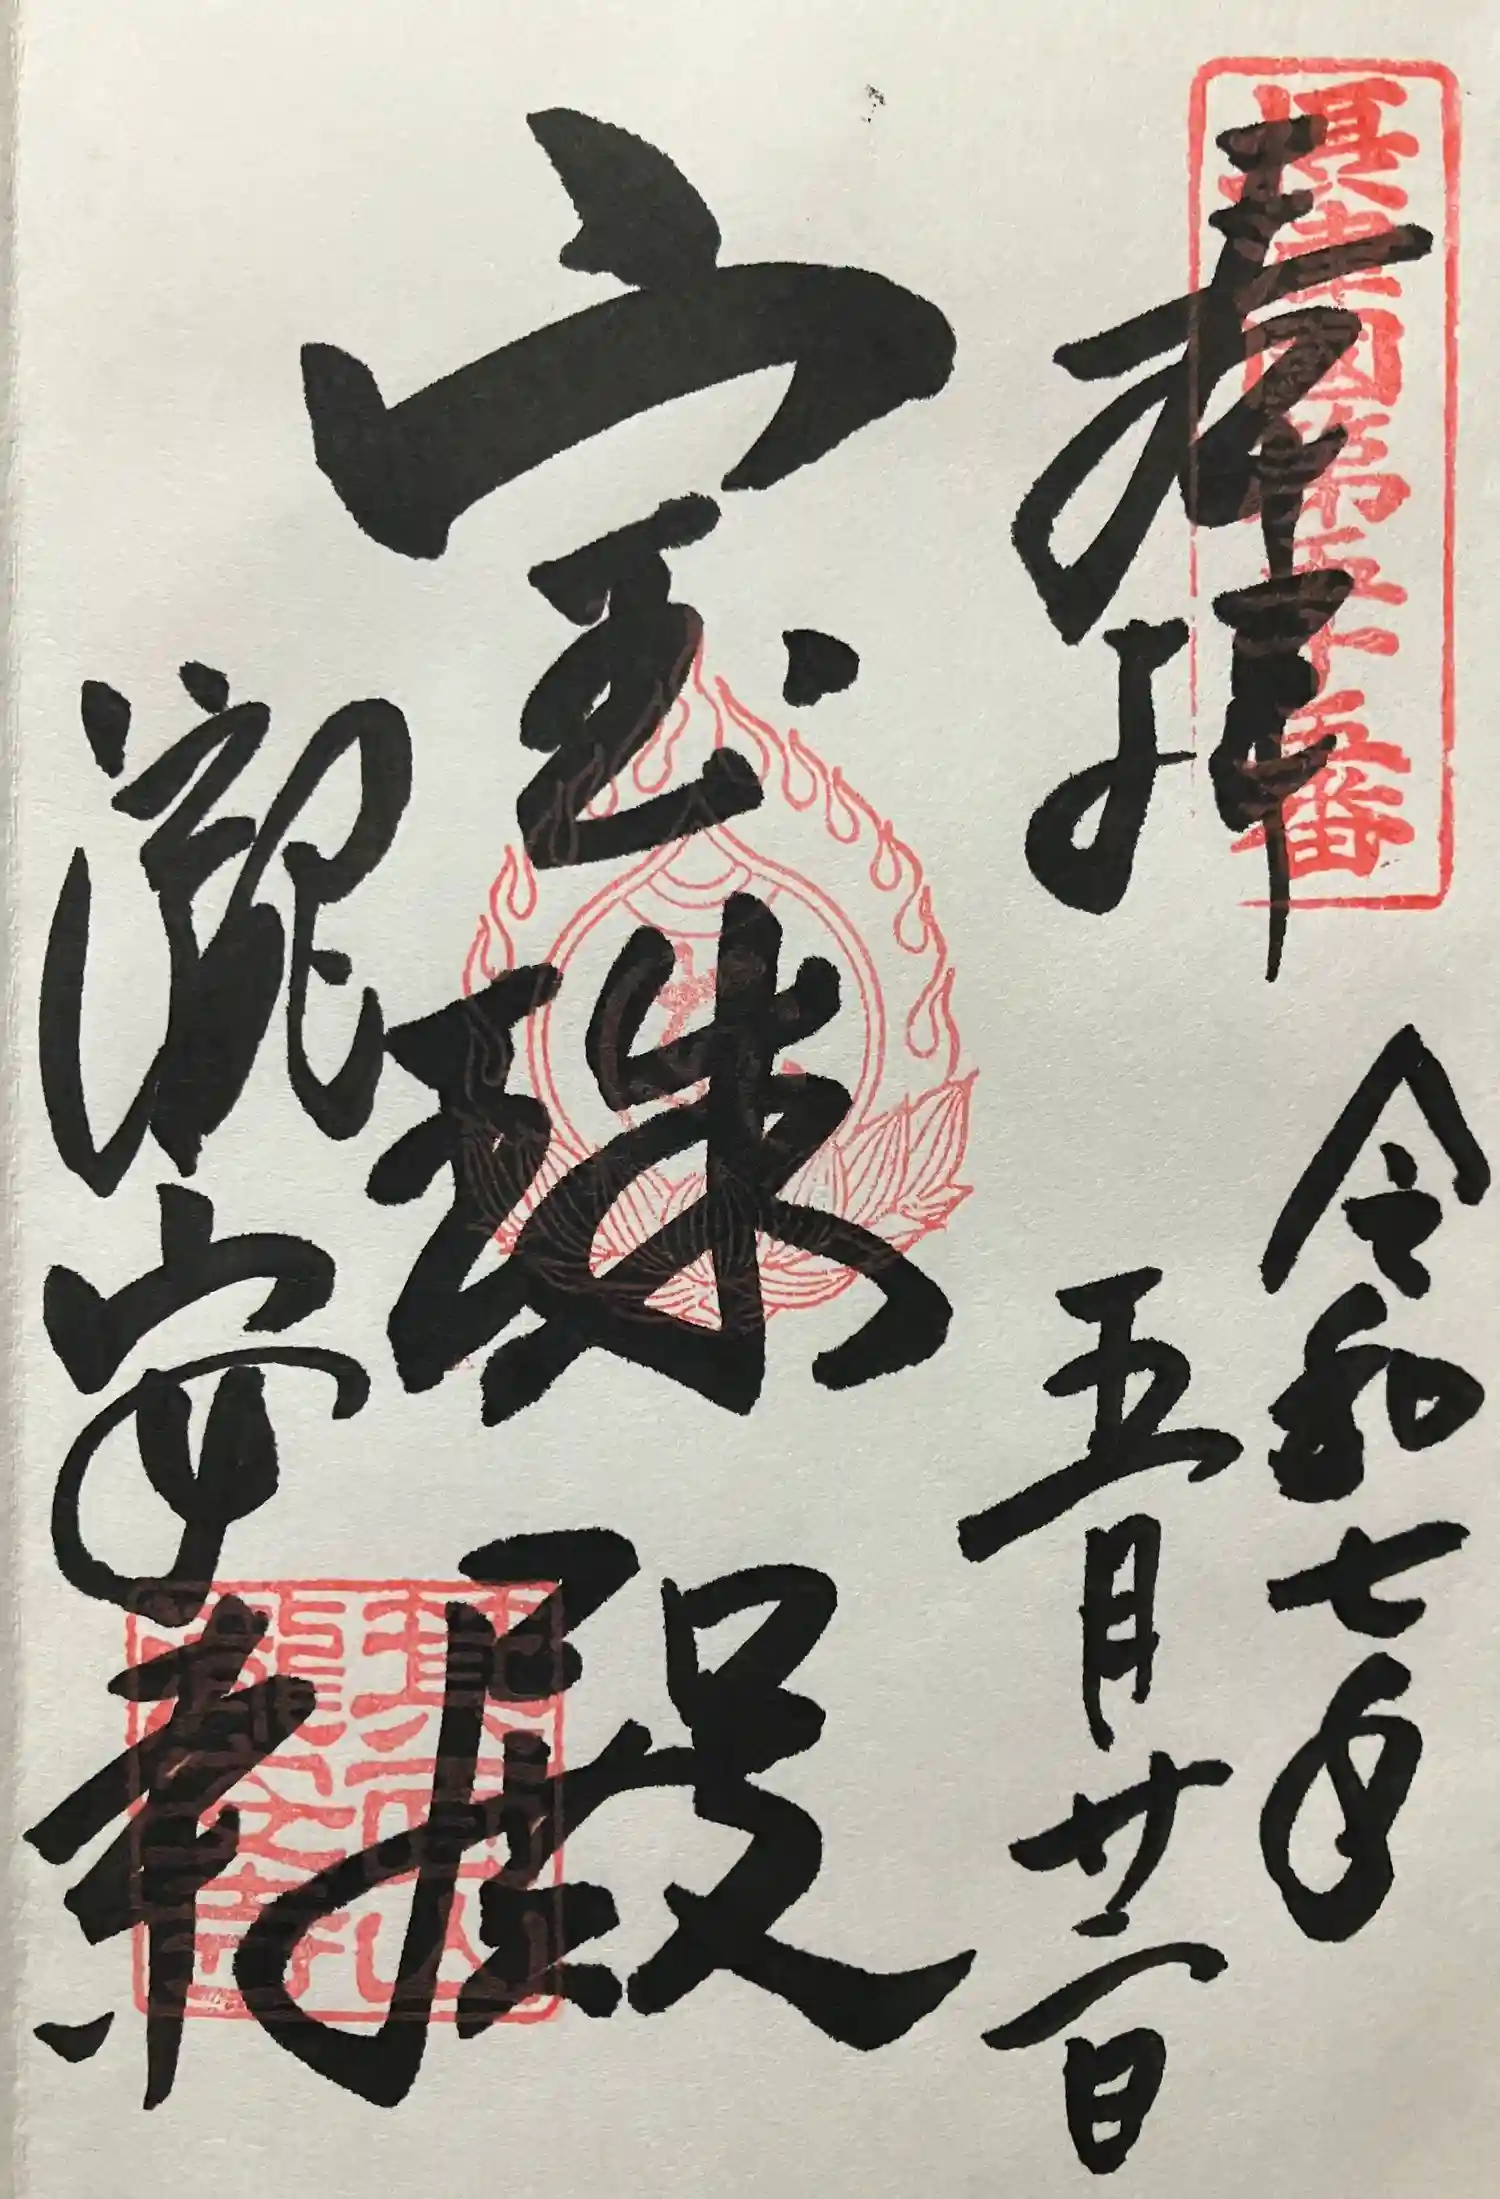 奉拝
攝津國第五十五番
令和七年
五月廿二日
宝珠殿
瀧安寺
箕面山
瀧安寺